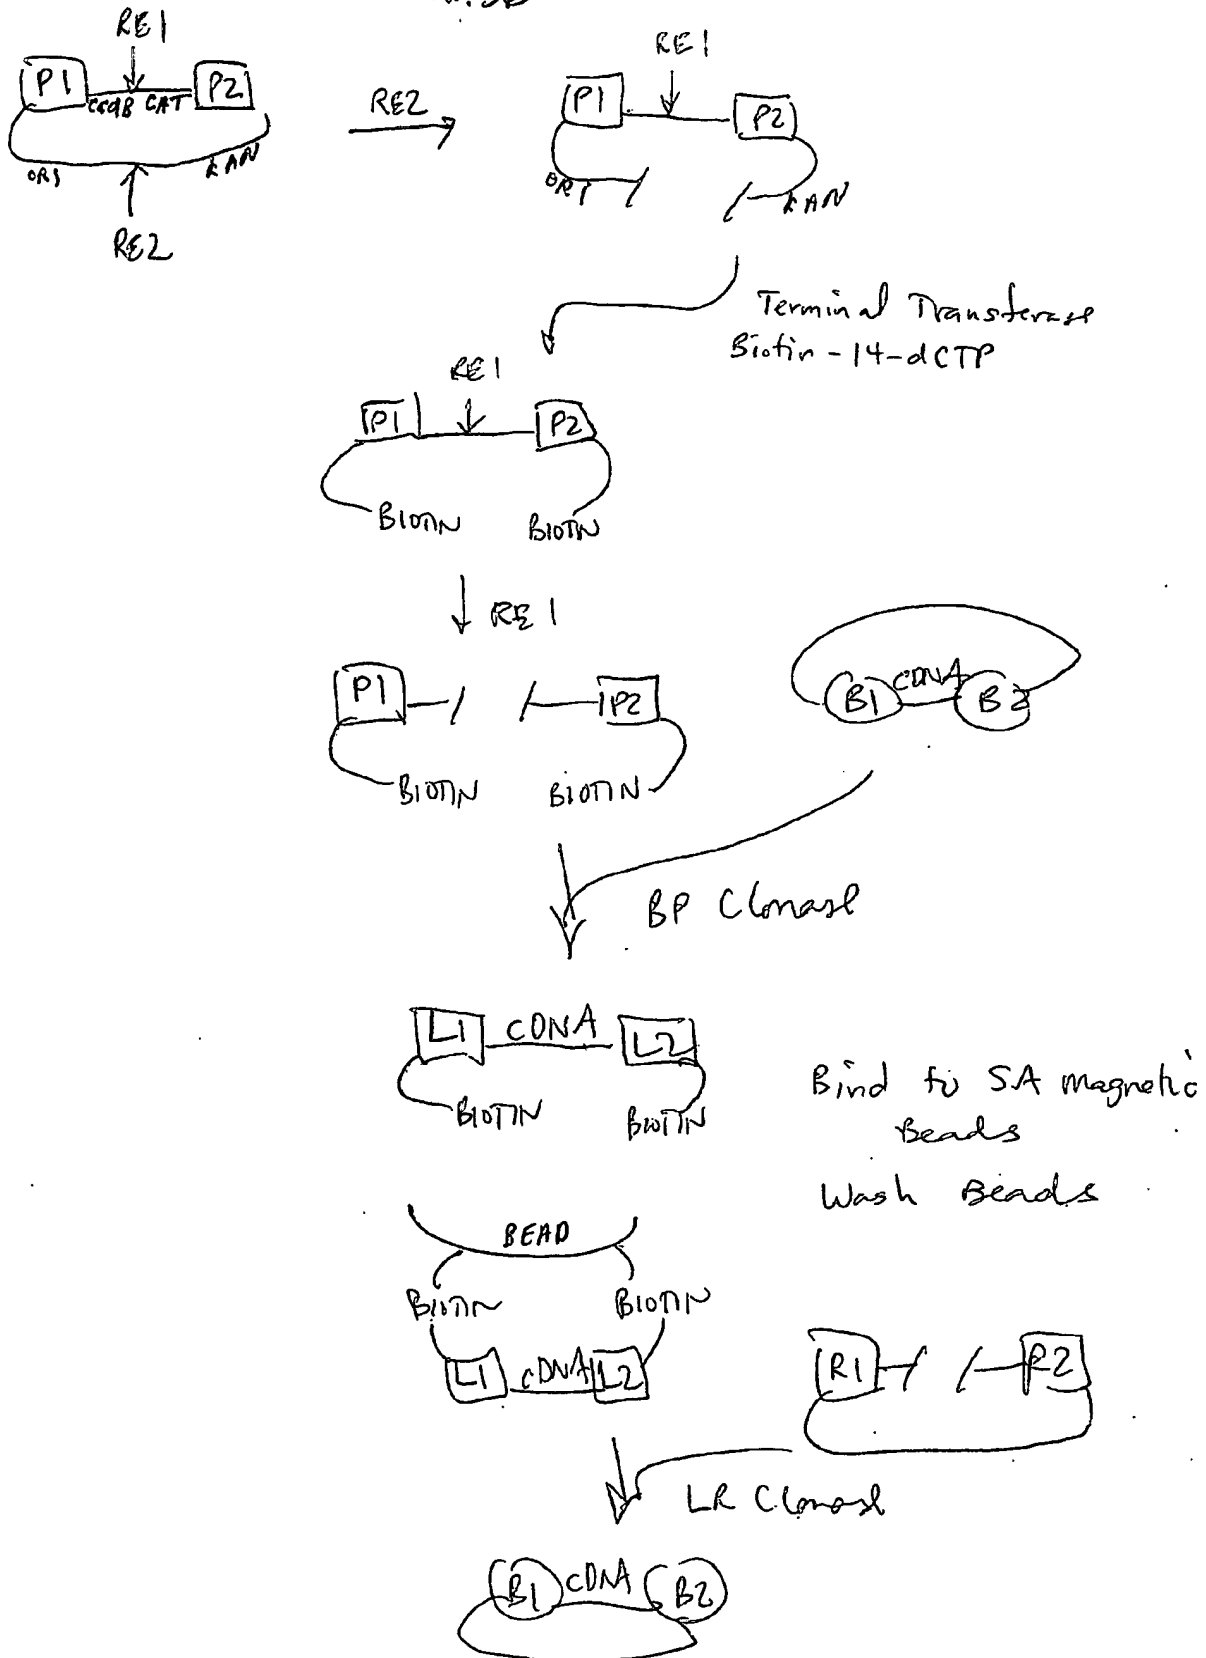 RE1
P1
ccdB CAT
P2
ORI
KAN
RE2
RE2
RE1
P1
P2
ORI
KAN
Terminal Transferase
Biotin-14-dCTP
RE1
P1
P2
BIOTIN
BIOTIN
RE1
P1
P2
BIOTIN
BIOTIN
B1
cDNA
B2
BP Clonase
L1
cDNA
L2
BIOTIN
BIOTIN
Bind to SA magnetic
Beads
Wash Beads
BEAD
BIOTIN
BIOTIN
L1
cDNA
L2
R1
R2
LR Clonase
B1
cDNA
B2